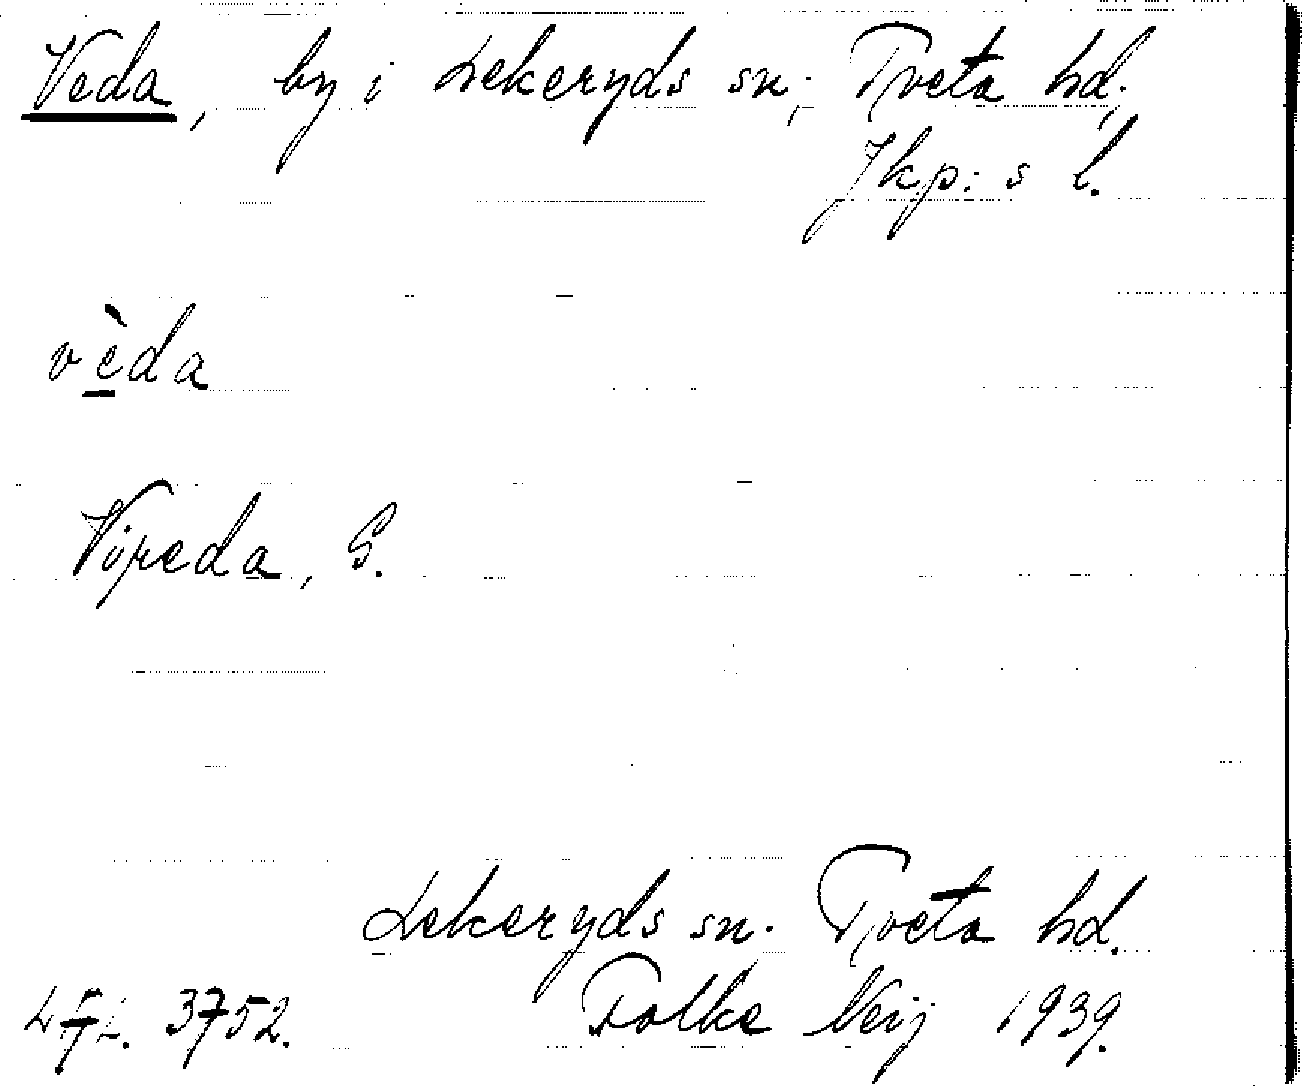 Veda, by i Lekeryds sn; Tveta hd.,
Jkp:s l.
vèda
Vireda, S.
Lekeryds sn. Tveta hd.
LFL. 3752. Folke Neij 1939.